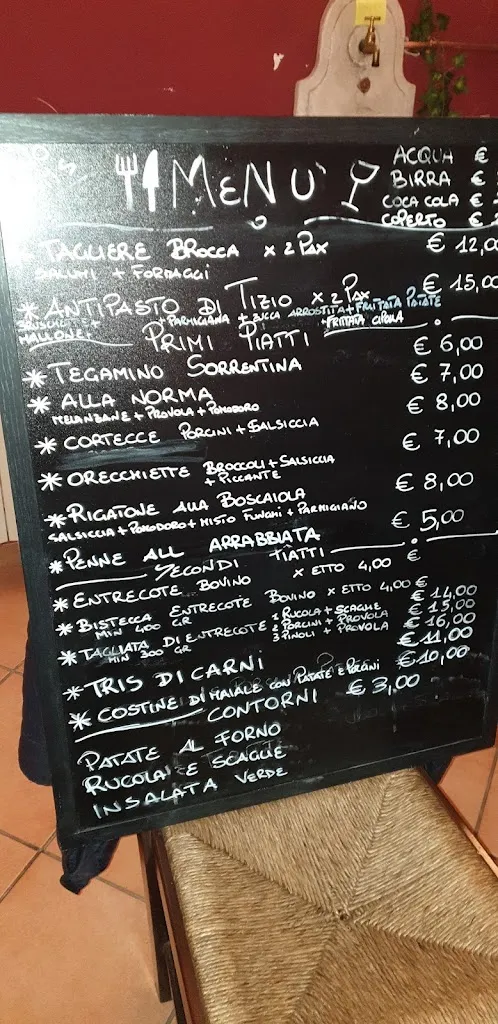 MENU'
ACQUA €
BIRRA €
COCA COLA €
COPERTO €
* TAGLIERE BROCCA x 2 PAX € 12,00
SALUMI + FORMAGGI
* ANTIPASTO DI TIZIO x 2 PAX € 15,00
+ PARMIGIANA + ZUCCA ARROSTITA + FRITTATA PATATE
+ FRITTATA CIPOLLA
PRIMI PIATTI
* TEGAMINO SORRENTINA € 6,00
* ALLA NORMA € 7,00
MELANZANE + PROVOLA + POMODORO
* CORTECCE PORCINI + SALSICCIA € 8,00
* ORECCHIETTE BROCCOLI + SALSICCIA € 7,00
+ PICCANTE
* RIGATONE ALLA BOSCAIOLA € 8,00
SALSICCIA + POMODORO + MISTO FUNGHI + PARMIGIANO
* PENNE ALL ARRABBIATA € 5,00
SECONDI PIATTI
* ENTRECOTE BOVINO x ETTO 4,00 €
* BISTECCA ENTRECOTE BOVINO x ETTO 4,00 €
MIN 400 GR
* TAGLIATA DI ENTRECOTE 1 RUCOLA + SCAGLIE € 14,00
MIN 300 GR
2 PORCINI + PROVOLA € 15,00
3 PINOLI + PROVOLA € 16,00
* TRIS DI CARNI € 11,00
* COSTINE DI MAIALE CON PATATE E PORCINI € 10,00
CONTORNI € 3,00
PATATE AL FORNO
RUCOLA E SCAGLIE
INSALATA VERDE